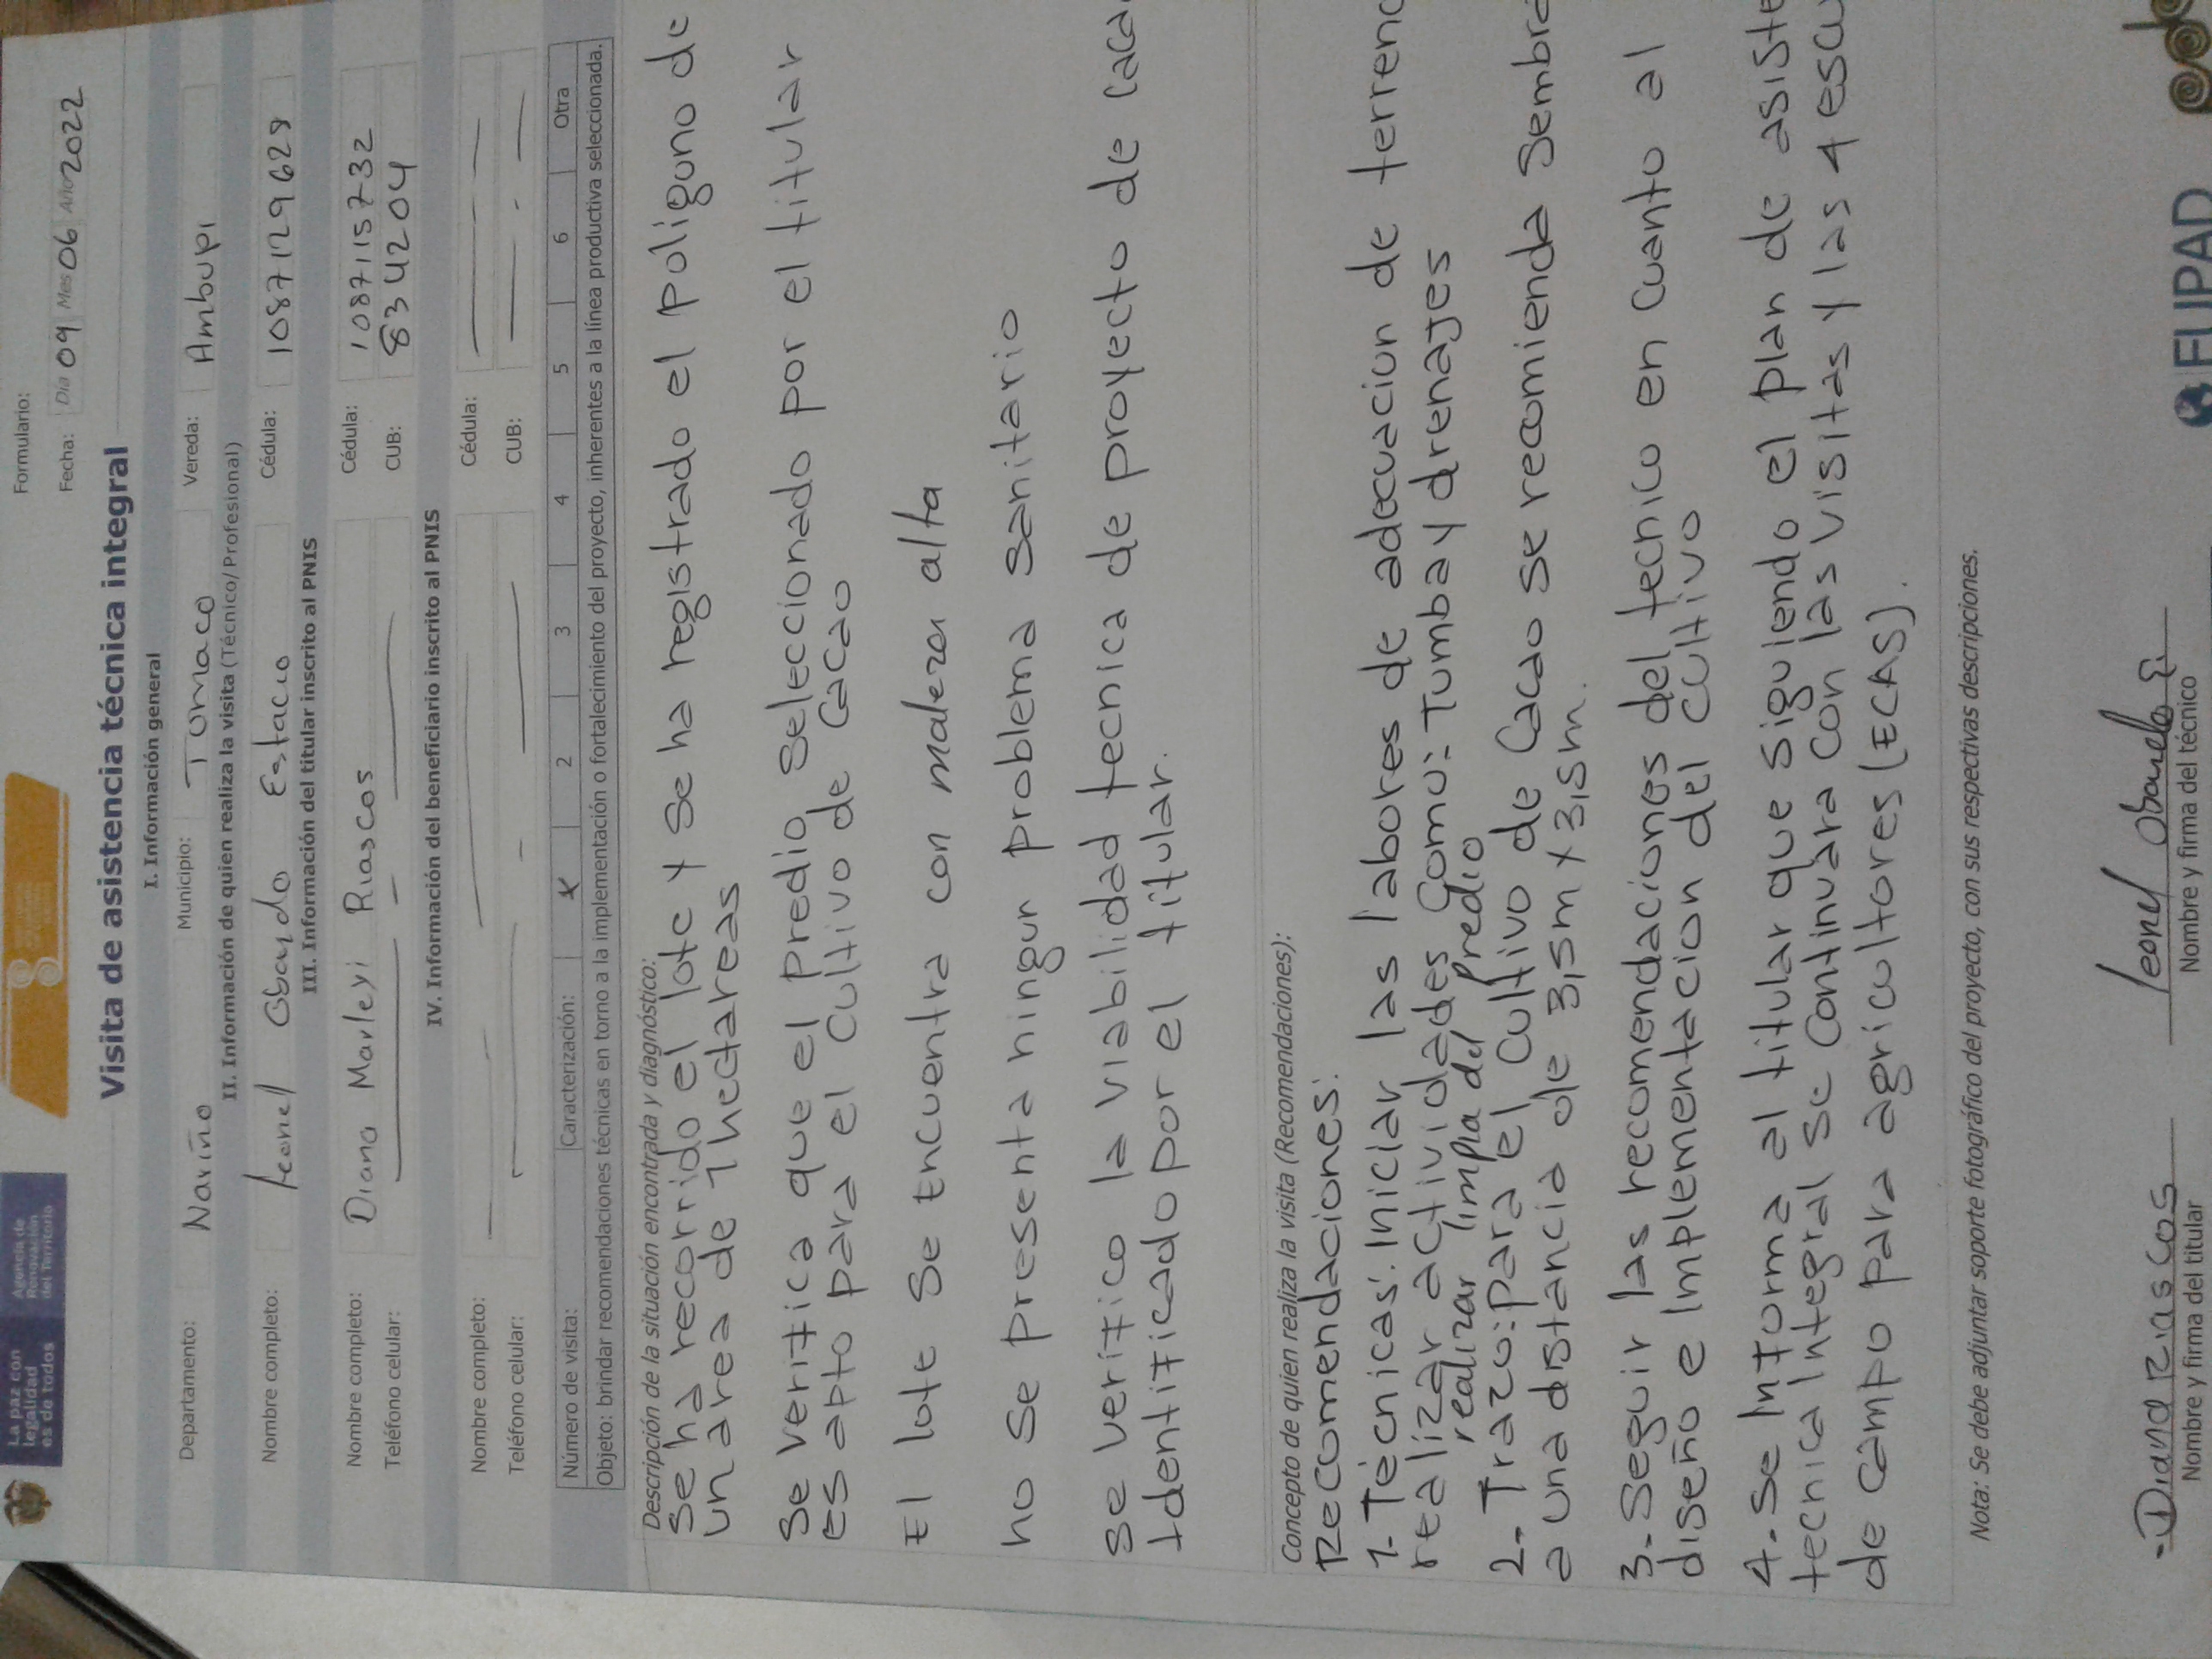 La paz con
legalidad
es de todos
Agencia de
Renovación
del Territorio
Formulario:
Fecha: Día 09 Mes 06 Año 2022
Visita de asistencia técnica integral
I. Información general
Departamento: Nariño Municipio: Tumaco Vereda: Ambupi
II. Información de quien realiza la visita (Técnico/Profesional)
Nombre completo: Leonel Obando Estacio Cédula: 1087129628
III. Información del titular inscrito al PNIS
Nombre completo: Diana Marleyi Riascos Cédula: 1087115732
Teléfono celular: CUB: 8342204
IV. Información del beneficiario inscrito al PNIS
Nombre completo: Cédula:
Teléfono celular: CUB:
Número de visita: Caracterización: X 2 3 4 5 6 Otra
Objeto: brindar recomendaciones técnicas en torno a la implementación o fortalecimiento del proyecto, inherentes a la línea productiva seleccionada.
Descripción de la situación encontrada y diagnóstico:
Se ha recorrido el lote y se ha registrado el poliguno de
un area de 1 hectareas
Se verifica que el predio seleccionado por el titular
es apto para el cultivo de cacao
El lote se encuentra con maleza alta
no se presenta ningun problema sanitario
se verifico la viabilidad tecnica de proyecto de caca
identificado por el titular.
Concepto de quien realiza la visita (Recomendaciones):
Recomendaciones:
1- Técnicas: Iniciar las labores de adecuacion de terreno
realizar actividades como: Tumba y drenajes
realizar limpia del predio
2- Trazo: para el cultivo de Cacao se recomienda sembra
a una distancia de 3,5m x 3,5m.
3- Seguir las recomendaciones del tecnico en cuanto al
diseño e implementacion del cultivo
4- Se informa al titular que siguiendo el plan de asiste
tecnica integral se continuara con las visitas y las 4 escu
de campo para agricultores (ECAS).
Nota: Se debe adjuntar soporte fotográfico del proyecto, con sus respectivas descripciones.
Diana Riascos Leonel Obando E
Nombre y firma del titular Nombre y firma del técnico
FUPAD